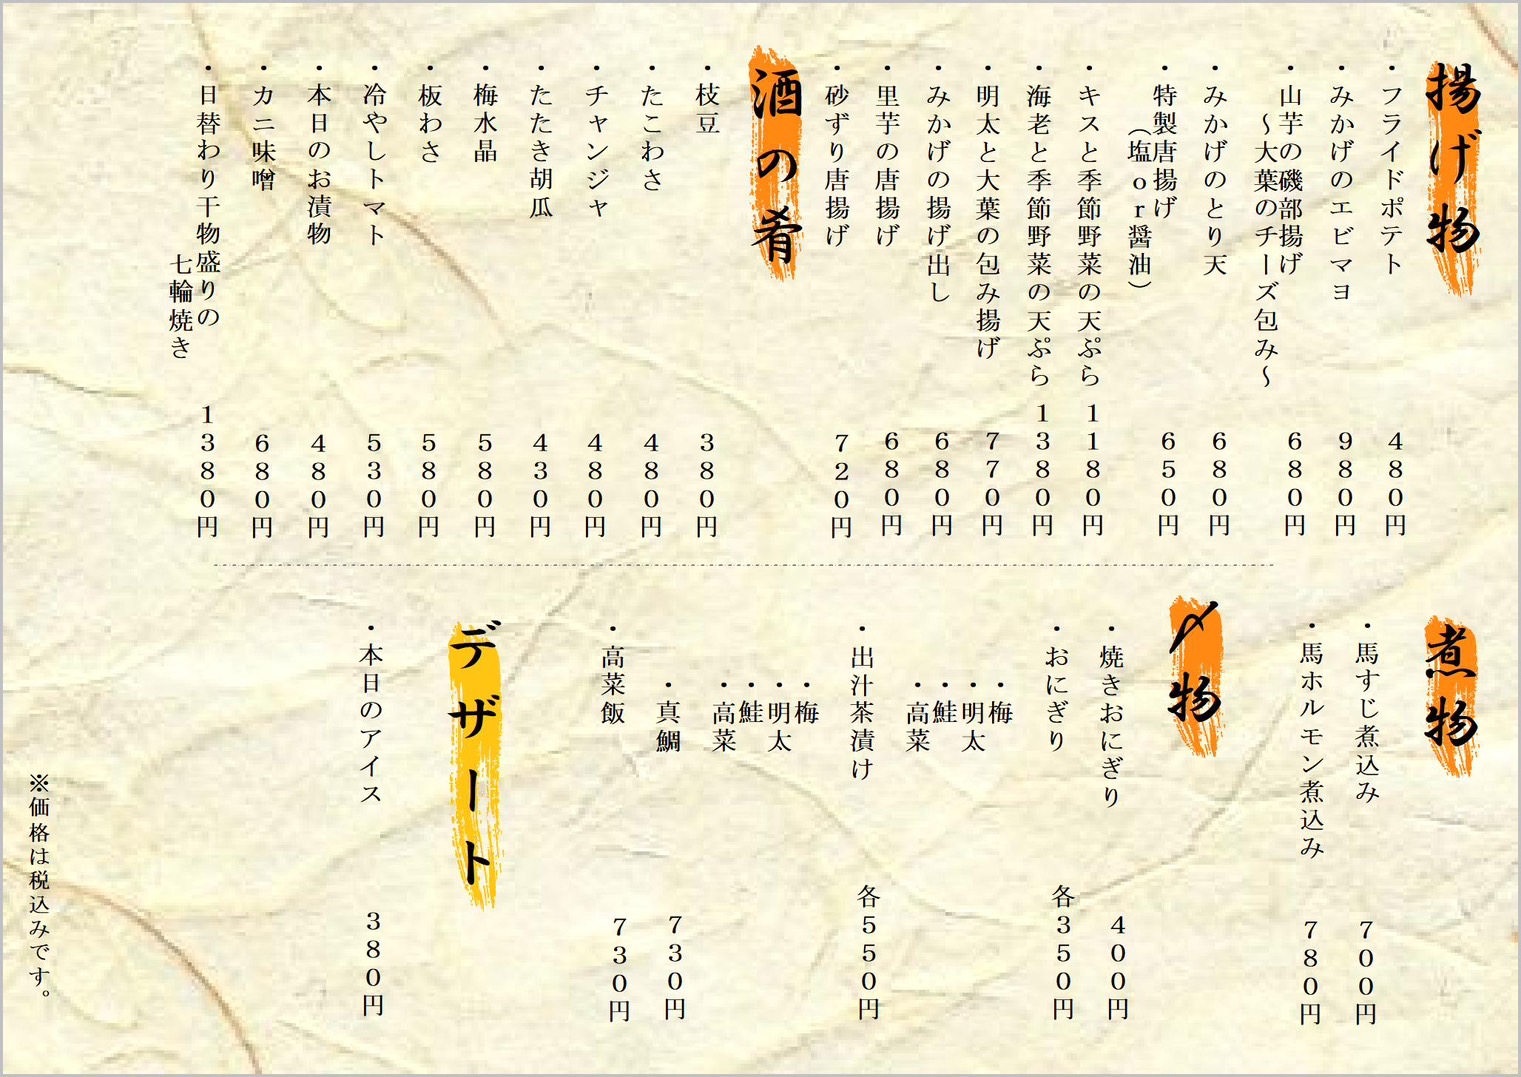 揚げ物
・フライドポテト　４８０円
・みかげのエビマヨ　９８０円
・山芋の磯部揚げ　６８０円
～大葉のチーズ包み～
・みかげのとり天　６８０円
・特製唐揚げ　６５０円
（塩ｏｒ醤油）
・キスと季節野菜の天ぷら　１１８０円
・海老と季節野菜の天ぷら　１３８０円
・明太と大葉の包み揚げ　７７０円
・みかげの揚げ出し　６８０円
・里芋の唐揚げ　６８０円
・砂ずり唐揚げ　７２０円
酒の肴
・枝豆　３８０円
・たこわさ　４８０円
・チャンジャ　４８０円
・たたき胡瓜　４３０円
・梅水晶　５８０円
・板わさ　５８０円
・冷やしトマト　５３０円
・本日のお漬物　４８０円
・カニ味噌　６８０円
・日替わり干物盛りの　１３８０円
七輪焼き
煮物
・馬すじ煮込み　７００円
・馬ホルモン煮込み　７８０円
〆物
・焼きおにぎり　４００円
・おにぎり　各３５０円
・梅
・明太
・鮭
・高菜
・出汁茶漬け　各５５０円
・梅
・明太
・鮭
・高菜
・真鯛　７３０円
・高菜飯　７３０円
デザート
・本日のアイス　３８０円
※価格は税込みです。